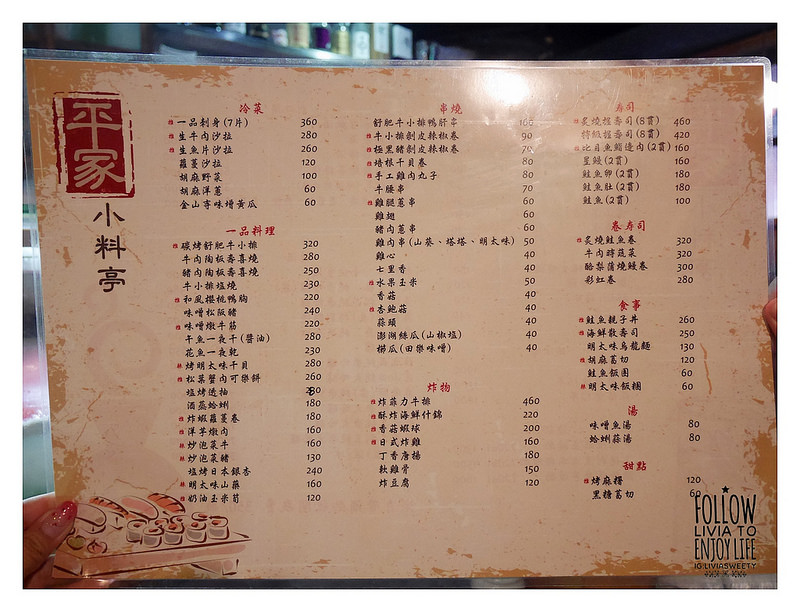 平冢
小料亭
冷菜
推 一品刺身(7片) 360
推 生牛肉沙拉 280
推 生魚片沙拉 260
蘿蔓沙拉 120
胡麻野菜 100
胡麻洋蔥 60
金山寺味增黃瓜 60
一品料理
推 碳烤舒肥牛小排 320
牛肉陶板壽喜燒 280
豬肉陶板壽喜燒 250
牛小排塩燒 230
推 和風櫻桃鴨胸 220
味噌松阪豬 240
推 味噌燉牛筋 220
午魚一夜干(醬油) 280
花魚一夜乾 230
辣 烤明太味干貝 280
推 松葉蟹肉可樂餅 260
塩烤透抽
酒蒸蛤蜊 180
推 炸蝦蘿蔓卷 180
推 洋芋燉肉 160
辣 炒泡菜牛 160
辣 炒泡菜豬 130
塩烤日本銀杏 240
辣 明太味山藥 160
推 奶油玉米筍 120
串燒
舒肥牛小排鴨肝串 160
推 牛小排剝皮辣椒卷 90
推 極黑豬剝皮辣椒卷 70
推 培根干貝卷 80
推 手工雞肉丸子 80
牛腰串 70
推 雞腿蔥串 60
雞翅 60
豬肉蔥串 60
雞肉串(山葵、塔塔、明太味) 50
雞心 40
七里香 40
推 水果玉米 50
香菇 40
推 杏鮑菇 40
蒜頭 40
澎湖絲瓜(山椒塩) 40
櫛瓜(田樂味噌) 40
炸物
推 炸菲力牛排 460
推 酥炸海鮮什錦 220
推 香菇蝦球 200
推 日式炸雞 160
丁香唐揚 180
軟雞骨 150
炸豆腐 120
寿司
推 炙燒握壽司(8貫) 460
特級握壽司(8貫) 420
推 比目魚鰭邊肉(2貫) 160
星鰻(2貫) 160
鮭魚卵(2貫) 180
鮭魚肚(2貫) 180
鮭魚(2貫) 100
卷寿司
推 炙燒鮭魚卷 320
牛肉時蔬菜 320
酪梨蒲燒鰻卷 300
彩虹卷 280
食事
推 鮭魚親子丼 260
推 海鮮散壽司 250
明太味烏龍麵 130
推 胡麻葛切 120
鮭魚飯團 60
辣 明太味飯糰 60
湯
味噌魚湯 80
蛤蜊蒜湯 80
甜點
推 烤麻糬 120
黑糖葛切 60
FOLLOW
LIVIA TO
ENJOY LIFE
IG:LIVIASWEETY